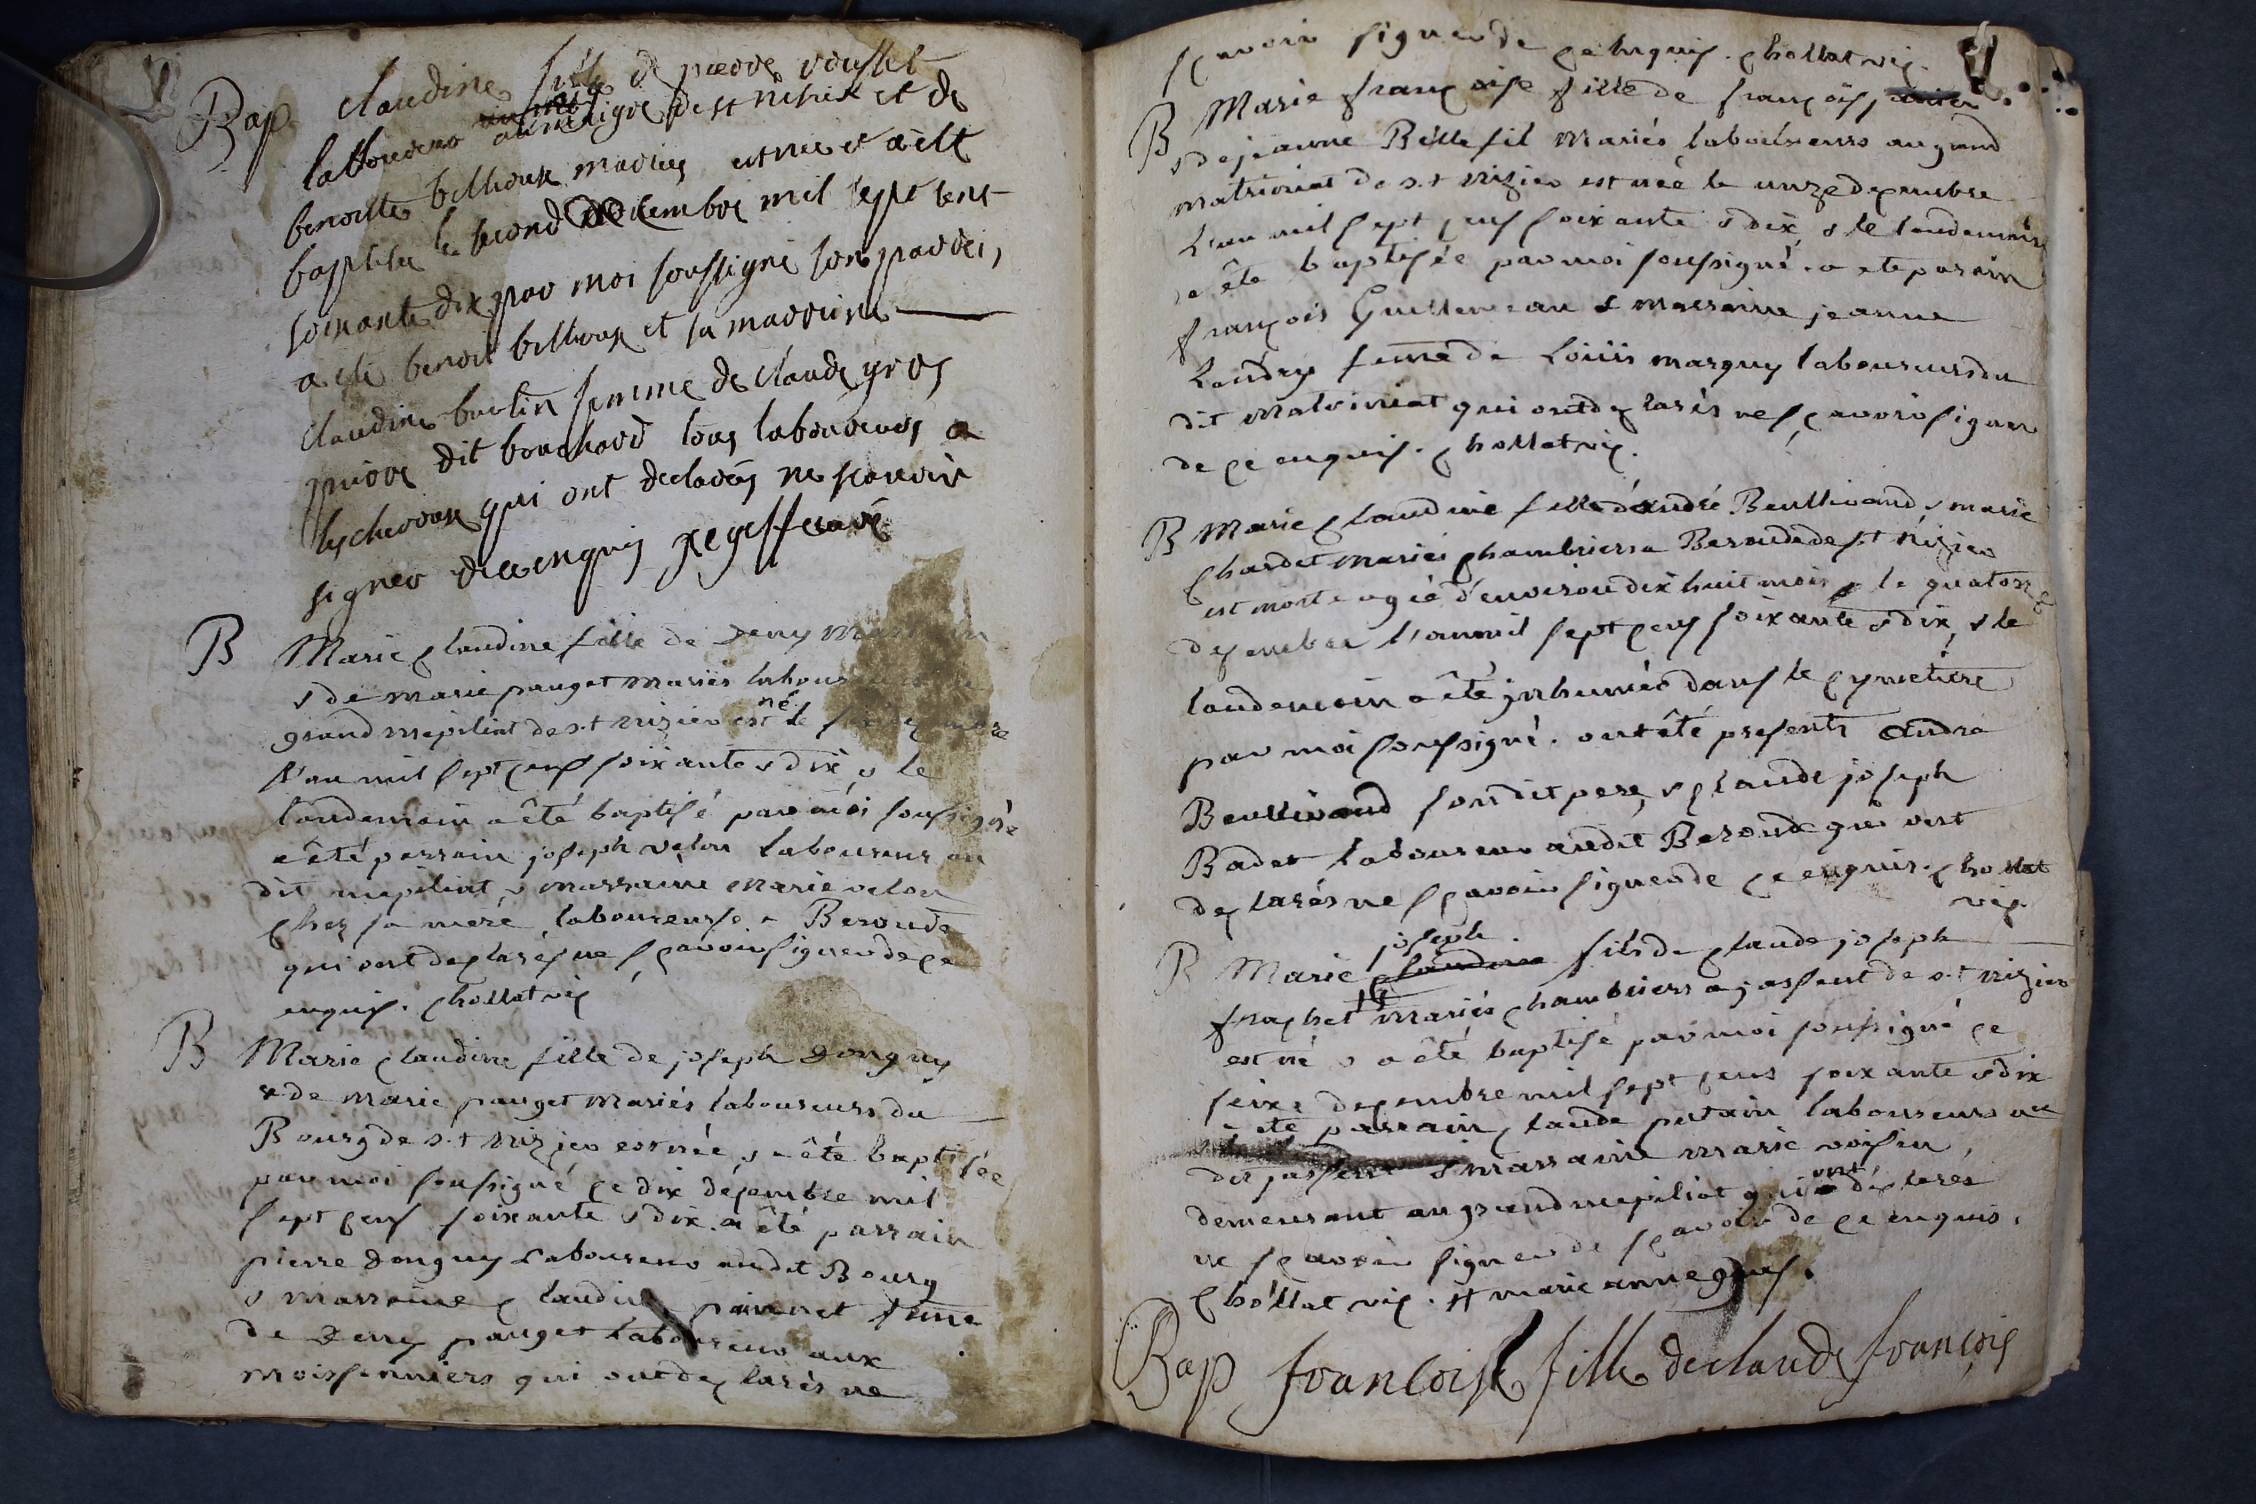 Bap claudine fille de pierre rousset
laboureur au meligne de st nizier et de
benoitte belhoux mariez est nee et a ete
baptisee le second decembre mil sept cent
soixante dix par moi soussigné son parrei,
a ete benoit belhoux et sa marreine
claudine burlin femme de claude gros
pierre dit bouchard tous laboureurs a
lescheroux qui ont declarez ne scavoir
signer de ce enquis
B Marie claudine fille de Deny
& de marie pauget mariés
grand mepiliat de s.t nizier est né le
l'an mil sept cens soixante & dix, & le
landemain a été baptisé par moi soussigné
a été parrain joseph velon laboureur au
dit mepiliat, & marraine marie velon
chez sa mere, laboureuse a Beroude
qui ont declarés ne sçavoir signer de ce
enquis. chollat vic
B Marie claudine fille de joseph Donguy
& de marie pauget mariés laboureurs du
Bourg de s.t nizier est née, & a été baptisée
par moi sousigné ce dix decembre mil
sept cens soixante & dix. a été parrain
pierre Donguy laboureur audit Bourg
& marraine claudine painnet feme
de Deny pauget laboureur aux
moissonniers qui ont declarés ne
sçavoir signer de ce enquis. chollat vic.
B Marie françoise fille de françois
& de jeanne Bellefil mariés laboureurs au grand
matrioniat de s.t nizier est née le unze decembre
l'an mil sept cens soixante & dix, & le landemain
a été baptisée par moi sousigné. a ete parain
françois Guillermeau & marraine jeanne
Landry feme de Loüis marguy laboureurs du
dit matrioniat qui ont declarés ne sçavoir signer
de ce enquis. chollat vic.
B Marie claudine fille d'andré Beullivand & marie
chardet mariés chambriers a Beroude de s.t nizier
est morte agée d'environ dix huit mois le quatorze
decembre l'an mil sept cens soixante & dix, & le
landemain a été inhumée dans le cymetière
par moi sousigné. ont été presents andré
Beullivand son dit pere, & claude joseph
Badet laboureur audit Beroude qui ont
declarés ne sçavoir signer de ce enquis. chollat
vic.
B Marie joseph fils de claude joseph
frachet mariés chambriers a jassent de s.t nizier
est né & a été baptisé par moi sousigné ce
seize decembre mil sept cens soixante & dix
a été parrain, claude putain laboureurs au
dit jassent & marraine marie voisin
demeurant au grand mepiliat qui ont déclarés
ne sçavoir signer de sçavoir de ce enquis.
chollat vic. # marie anne gros.
Bap francoise fille de claude francois